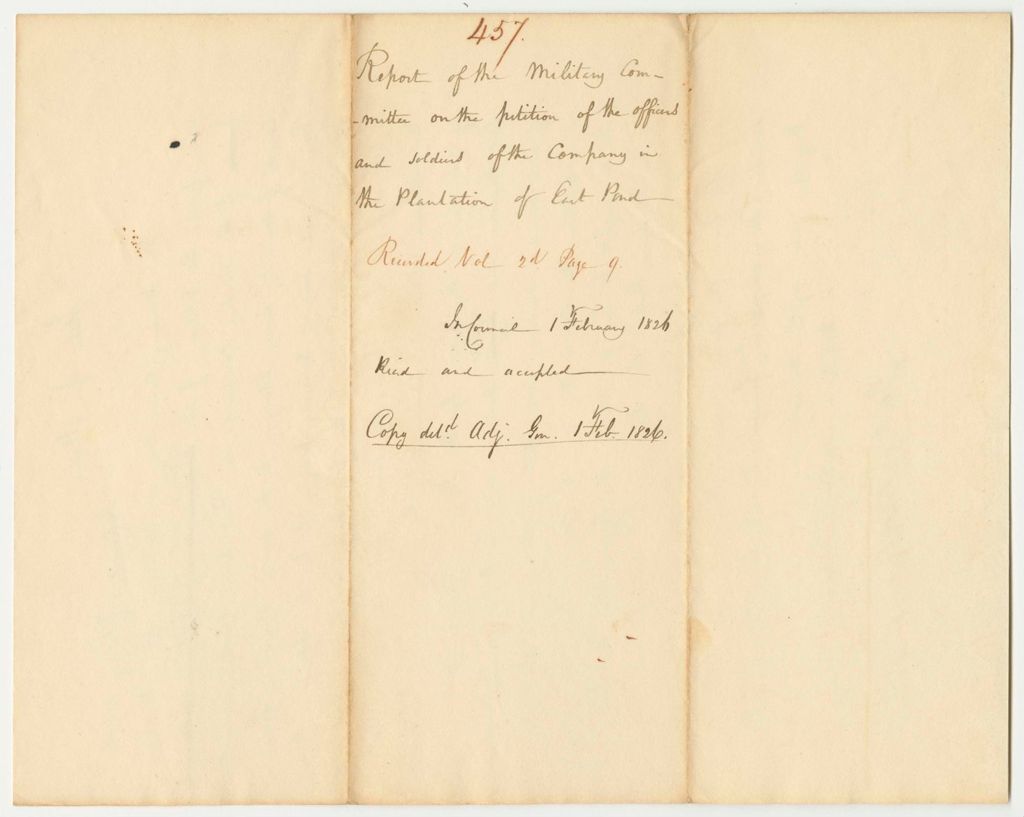 457.
Report of the Military Com-
-mittee on the petition of the officers
and soldiers of the Company in
the Plantation of East Pond
Recorded Vol 2d Page 9.
In Council 1 February 1826
Read and accepted
Copy deld. Adj. Gen. 1 Feb. 1826.